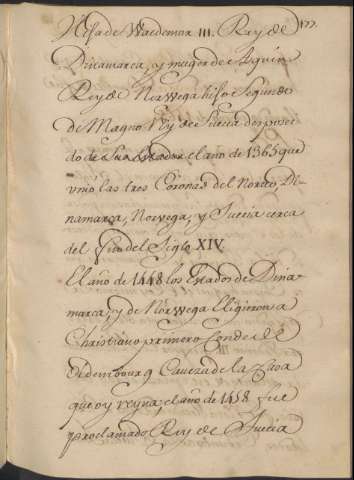 Hija de Waedemar III. Rey de 177.
Dinamarca, y muger de Aquin
Rey de Norwega hijo segundo
de Magno Rey de Suecia desposei
do de sus Estados el año de 1365 que
vnió las tres Coronas del Norte, Di-
namarca, Norvega, y Suecia cerca
del fin del Siglo XIV.
El año de 1448 los Estados de Dina
marca, y de Norwega Eligieron a
Christiano primero Conde de
Oldembourg Caveza de la Casa
que oy reyna, el año de 1458 fue
proclamado Rey de Suecia